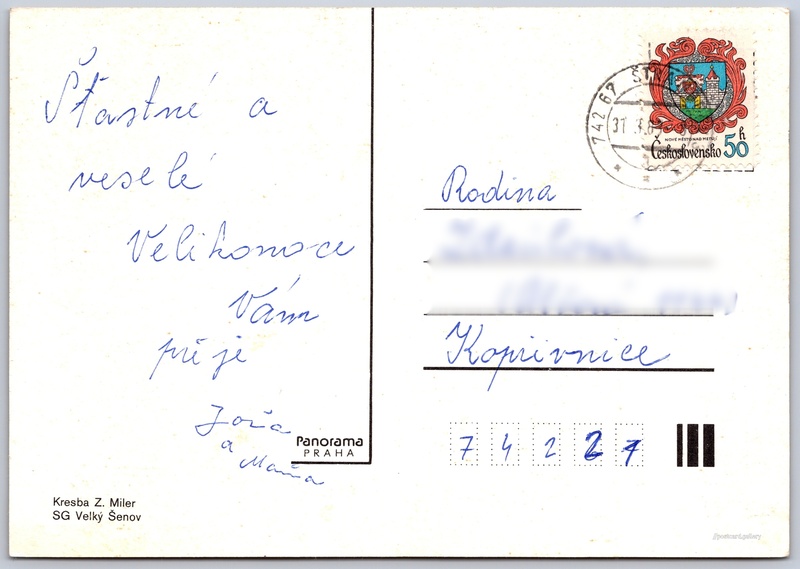 Šťastné a
veselé
Velikonoce
Vám
přeje
Joža
a
Máňa
Panorama
PRAHA
Kresba Z. Miler
SG Velký Šenov
NOVÉ MĚSTO NAD METUJÍ
Československo 50 h
742 67
31
Rodina
Kopřivnice
7 4 2 2 1
//postcard.gallery